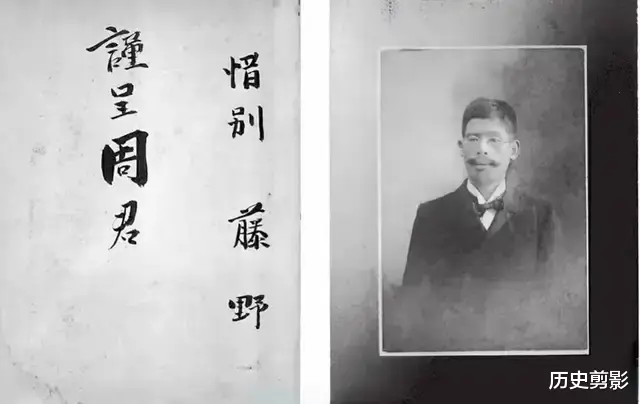 惜别 藤野
謹呈周君
历史剪影